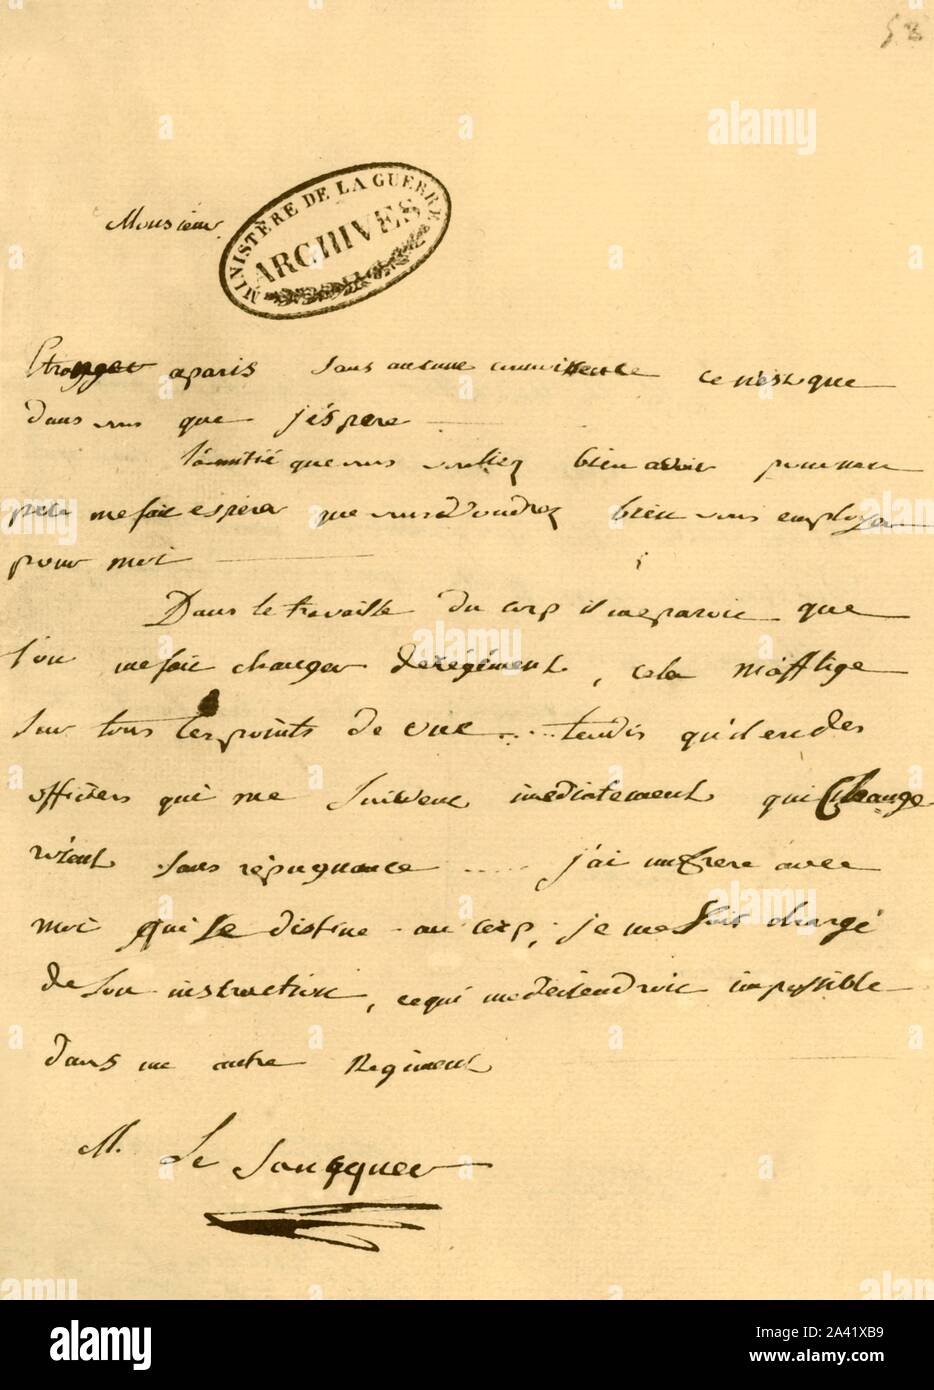 58
Monsieur
MINISTÈRE DE LA GUERRE
ARCHIVES
Etranger a paris sans aucune ce n'est que
dans vous que j'éspere
l'amitié que vous vouliez bien avoir pour mon
pere me fait esperer que vous voudrez bien vous employer
pour moi
Dans le travaille du corp il me paroit que
l'on me fait changer de régément, cela m'afflige
sur tous les points de vue .... tendis qu'il en des
officiers qui me suivent imédiatement qui change
roient sans répugnance ..... j'ai un frere avec
moi qui se distine au corp; je me suis chargé
de son instruction, ce qui me deviendroit impossible
dans une autre Regiment
M. Le
alamy
Image ID: 2A41XB9
www.alamy.com